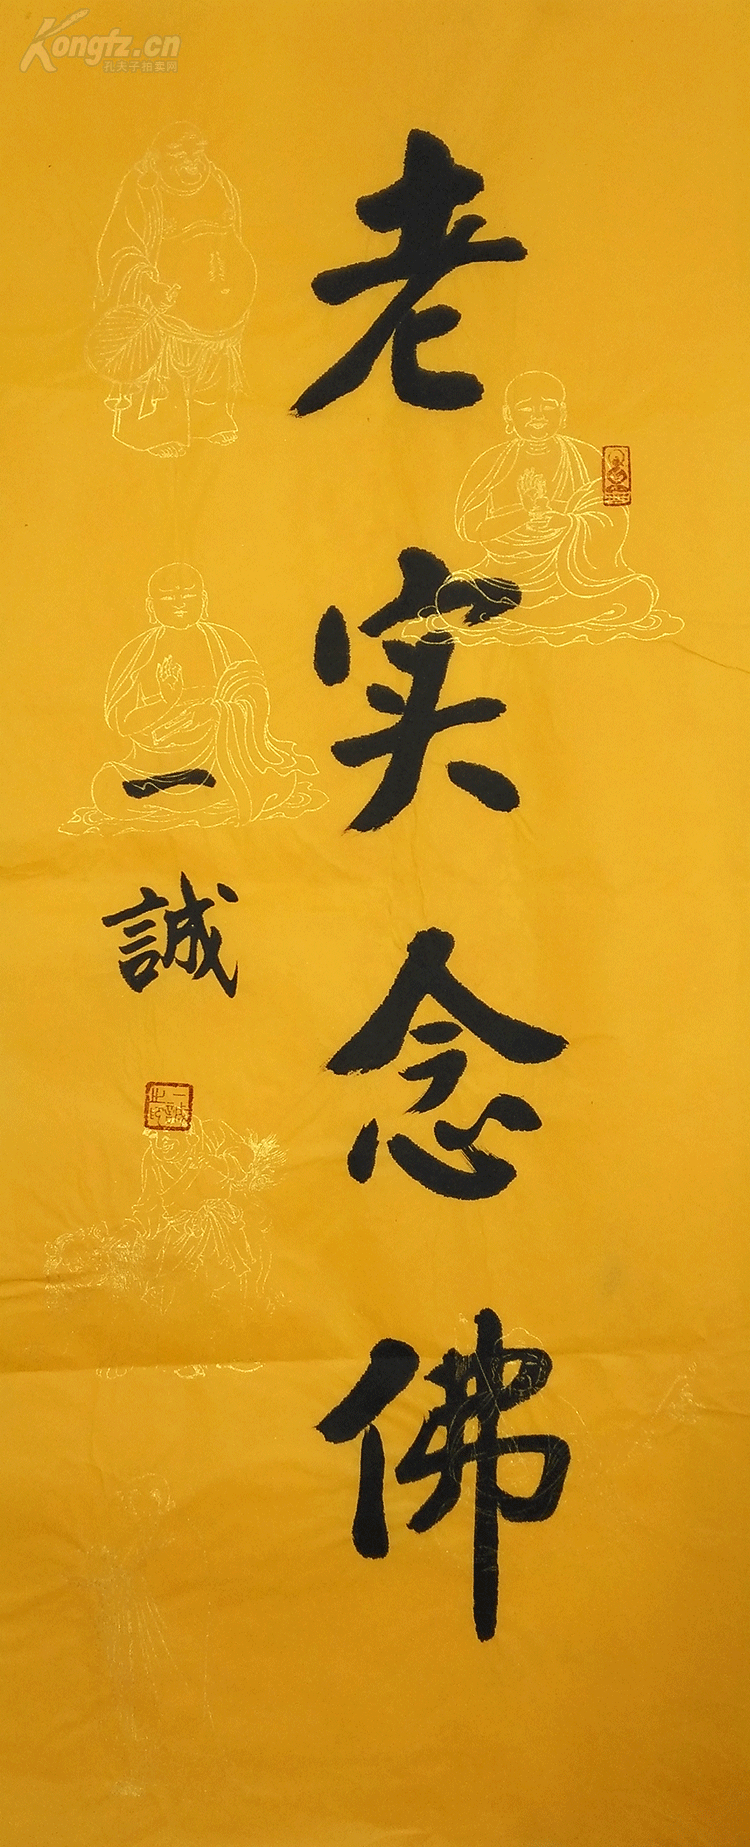 Kongfz.cn
孔夫子拍卖网
老实念佛
一誠
一誠之印